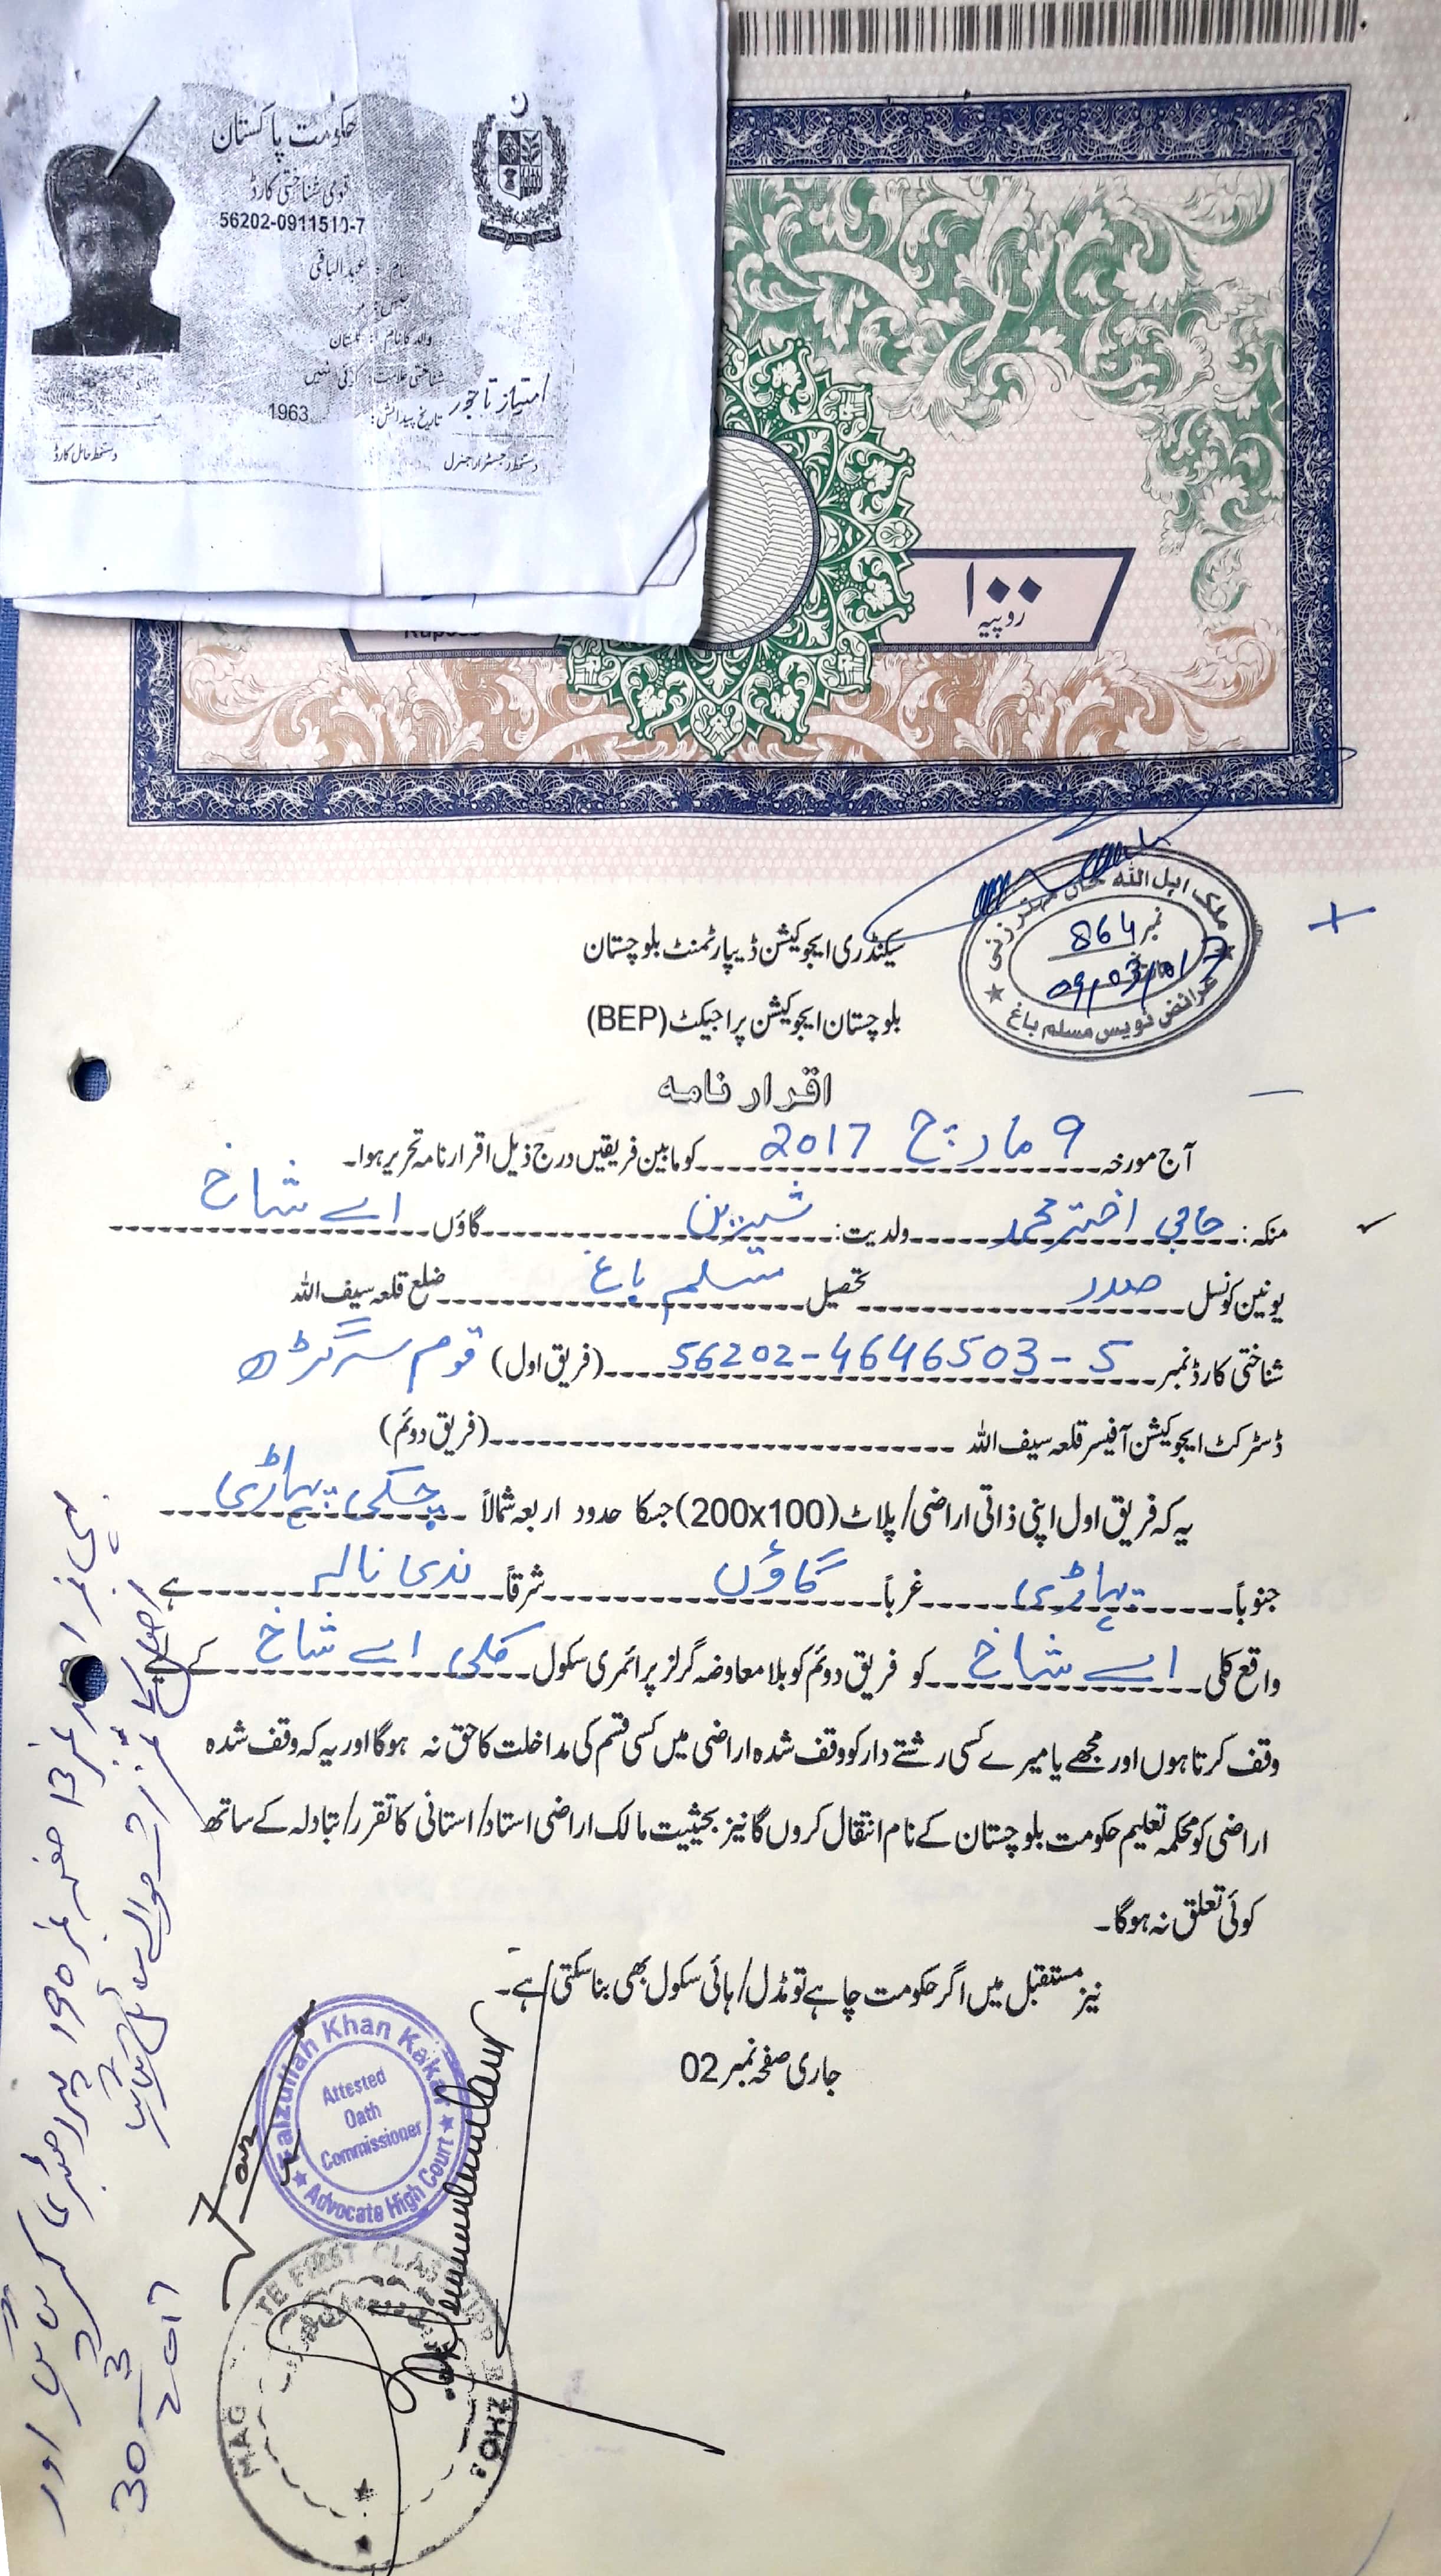 حکومت پاکستان
قومی شناختی کارڈ
56202-0911510-7
نام : عبدالباقی
جنس : مرد
والد کا نام : گلستان
شناختی علامت : کوئی نہیں
تاریخ پیدائش: 1963
امتیاز تاجور
دستخط حامل کارڈ
دستخط رجسٹرار جنرل
۱۰۰
روپیہ
Rupees
نمبر 864
09/03/017
عرائض نویس مسلم باغ
سیکنڈری ایجوکیشن ڈیپارٹمنٹ بلوچستان
بلوچستان ایجوکیشن پراجیکٹ (BEP)
اقرار نامہ
آج مورخہ 9 مارچ 2017 کو مابین فریقین درج ذیل اقرار نامہ تحریر ہوا۔
منکہ: حاجی اختر محمد ولدیت: شیرین گاؤں اے شاخ
یونین کونسل صدر تحصیل مسلم باغ ضلع قلعہ سیف اللہ
شناختی کارڈ نمبر 56202-4646503-5 (فریق اول) قوم سرگڑھ
ڈسٹرکٹ ایجوکیشن آفیسر قلعہ سیف اللہ (فریق دوئم)
یہ کہ فریق اول اپنی ذاتی اراضی/پلاٹ (200x100) جسکا حدود اربعہ شمالاً چکی پہاڑی
جنوباً پہاڑی غرباً گاؤں شرقاً ندی نالہ ہے
واقع کلی اے شاخ کو فریق دوئم کو بلا معاوضہ گرلز پرائمری سکول کلی اے شاخ کے لیے
وقف کرتا ہوں اور مجھے یا میرے کسی رشتے دار کو وقف شدہ اراضی میں کسی قسم کی مداخلت کا حق نہ ہوگا اور یہ کہ وقف شدہ
اراضی کو محکمہ تعلیم حکومت بلوچستان کے نام انتقال کروں گا نیز بحیثیت مالک اراضی استاد/استانی کا تقرر/تبادلہ کے ساتھ
کوئی تعلق نہ ہوگا۔
نیز مستقبل میں اگر حکومت چاہے تو مڈل/ہائی سکول بھی بنا سکتی ہے۔
جاری صفحہ نمبر 02
Faizullah Khan Kakar
Attested
Oath
Commissioner
Advocate High Court
30-3
2017